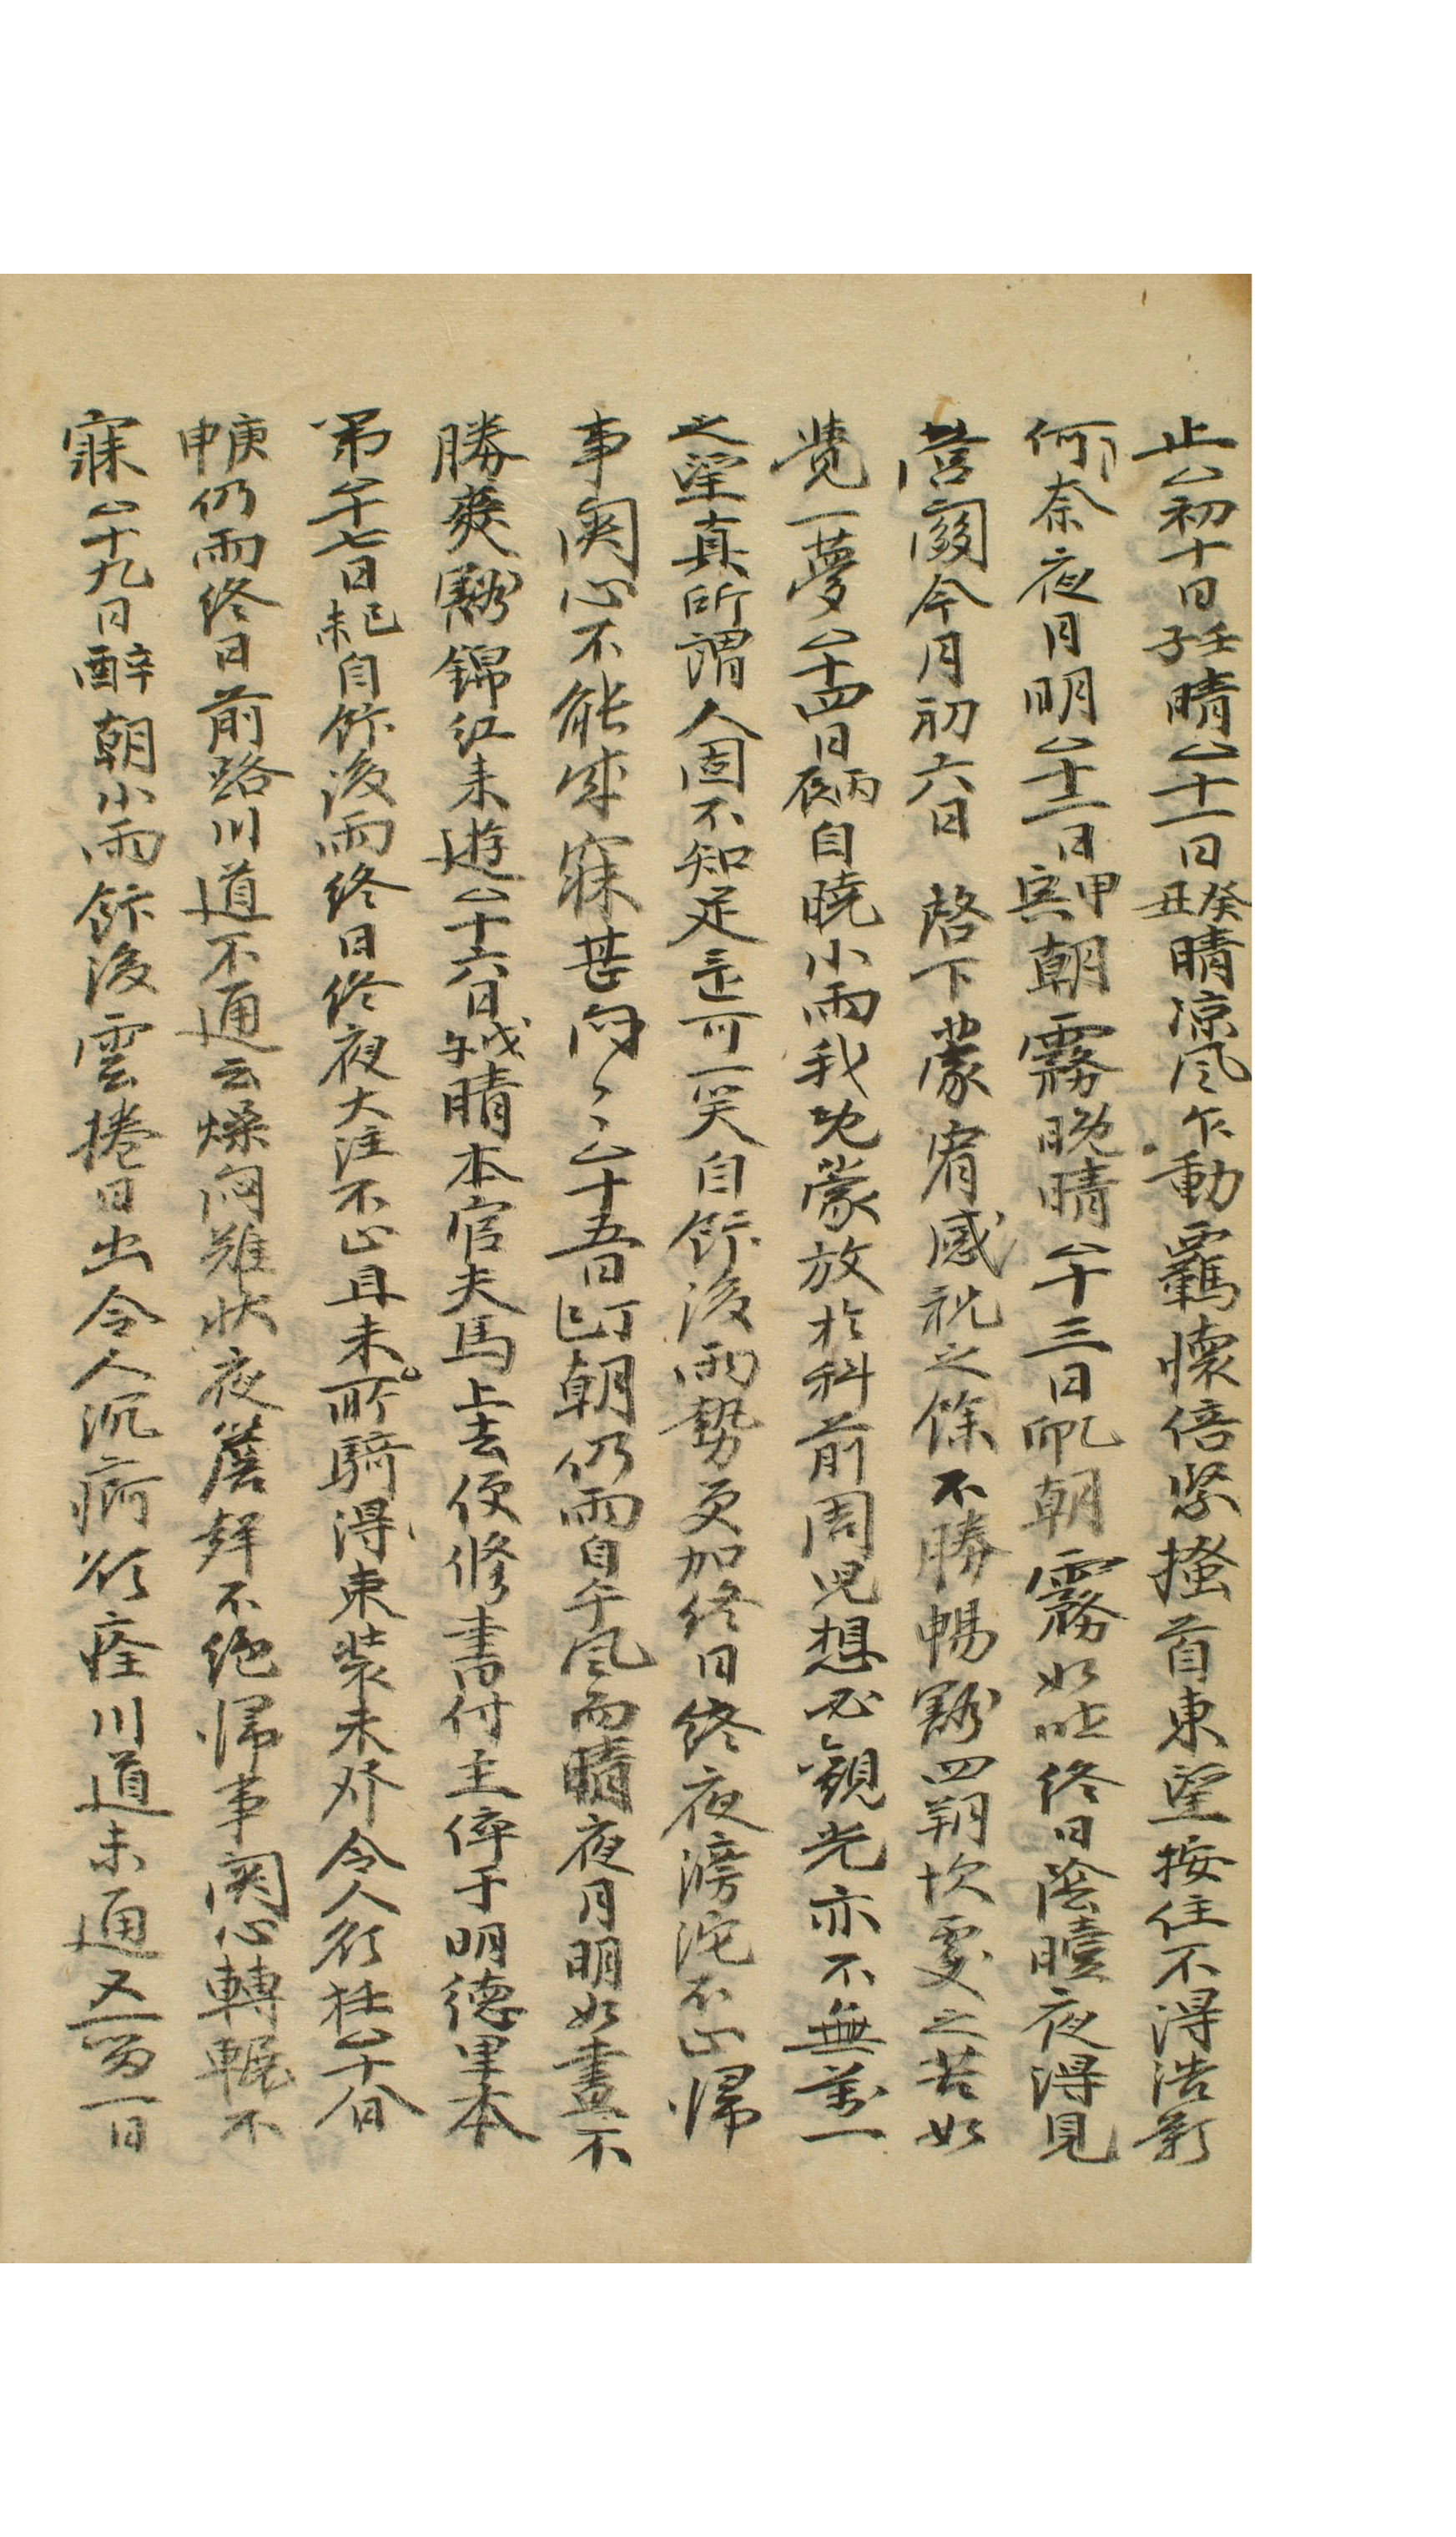 止 初十日壬子晴 十一日癸丑晴凉风乍動羈懷倍緊搔首東望按住不得浩歎
何奈夜月明 十二日甲寅朝霧晚晴 十三日乙卯朝霧如昨終日陰曀夜得見
營關今月初六日 啓下蒙宥感祝之餘不勝暢豁四朔坎窞之苦如
覺一夢 十四日丙辰自曉小雨我既蒙放於科前周児想必觀光亦不無萬一
之望真所謂人固不知足是可一笑自飰後雨勢更加終日終夜滂沱不止歸
事関心不能成寐甚悶〻 十五日丁巳朝仍雨自午风而晴夜月明如晝不
勝爽豁錦江来遊 十六日戊午晴本官夫馬上去便修書付主倅于明德里本
第 十七日己未自飰後雨終日終夜大注不止且未所騎得束装未炊令人欲狂 十八日
庚申仍雨終日前路川道不通云燥悶難狀夜簷鋅不絶歸事関心轉輾不
寐 十九日辛酉朝小雨飰後雲捲日出令人沉痾欲痊川道未通又留一日